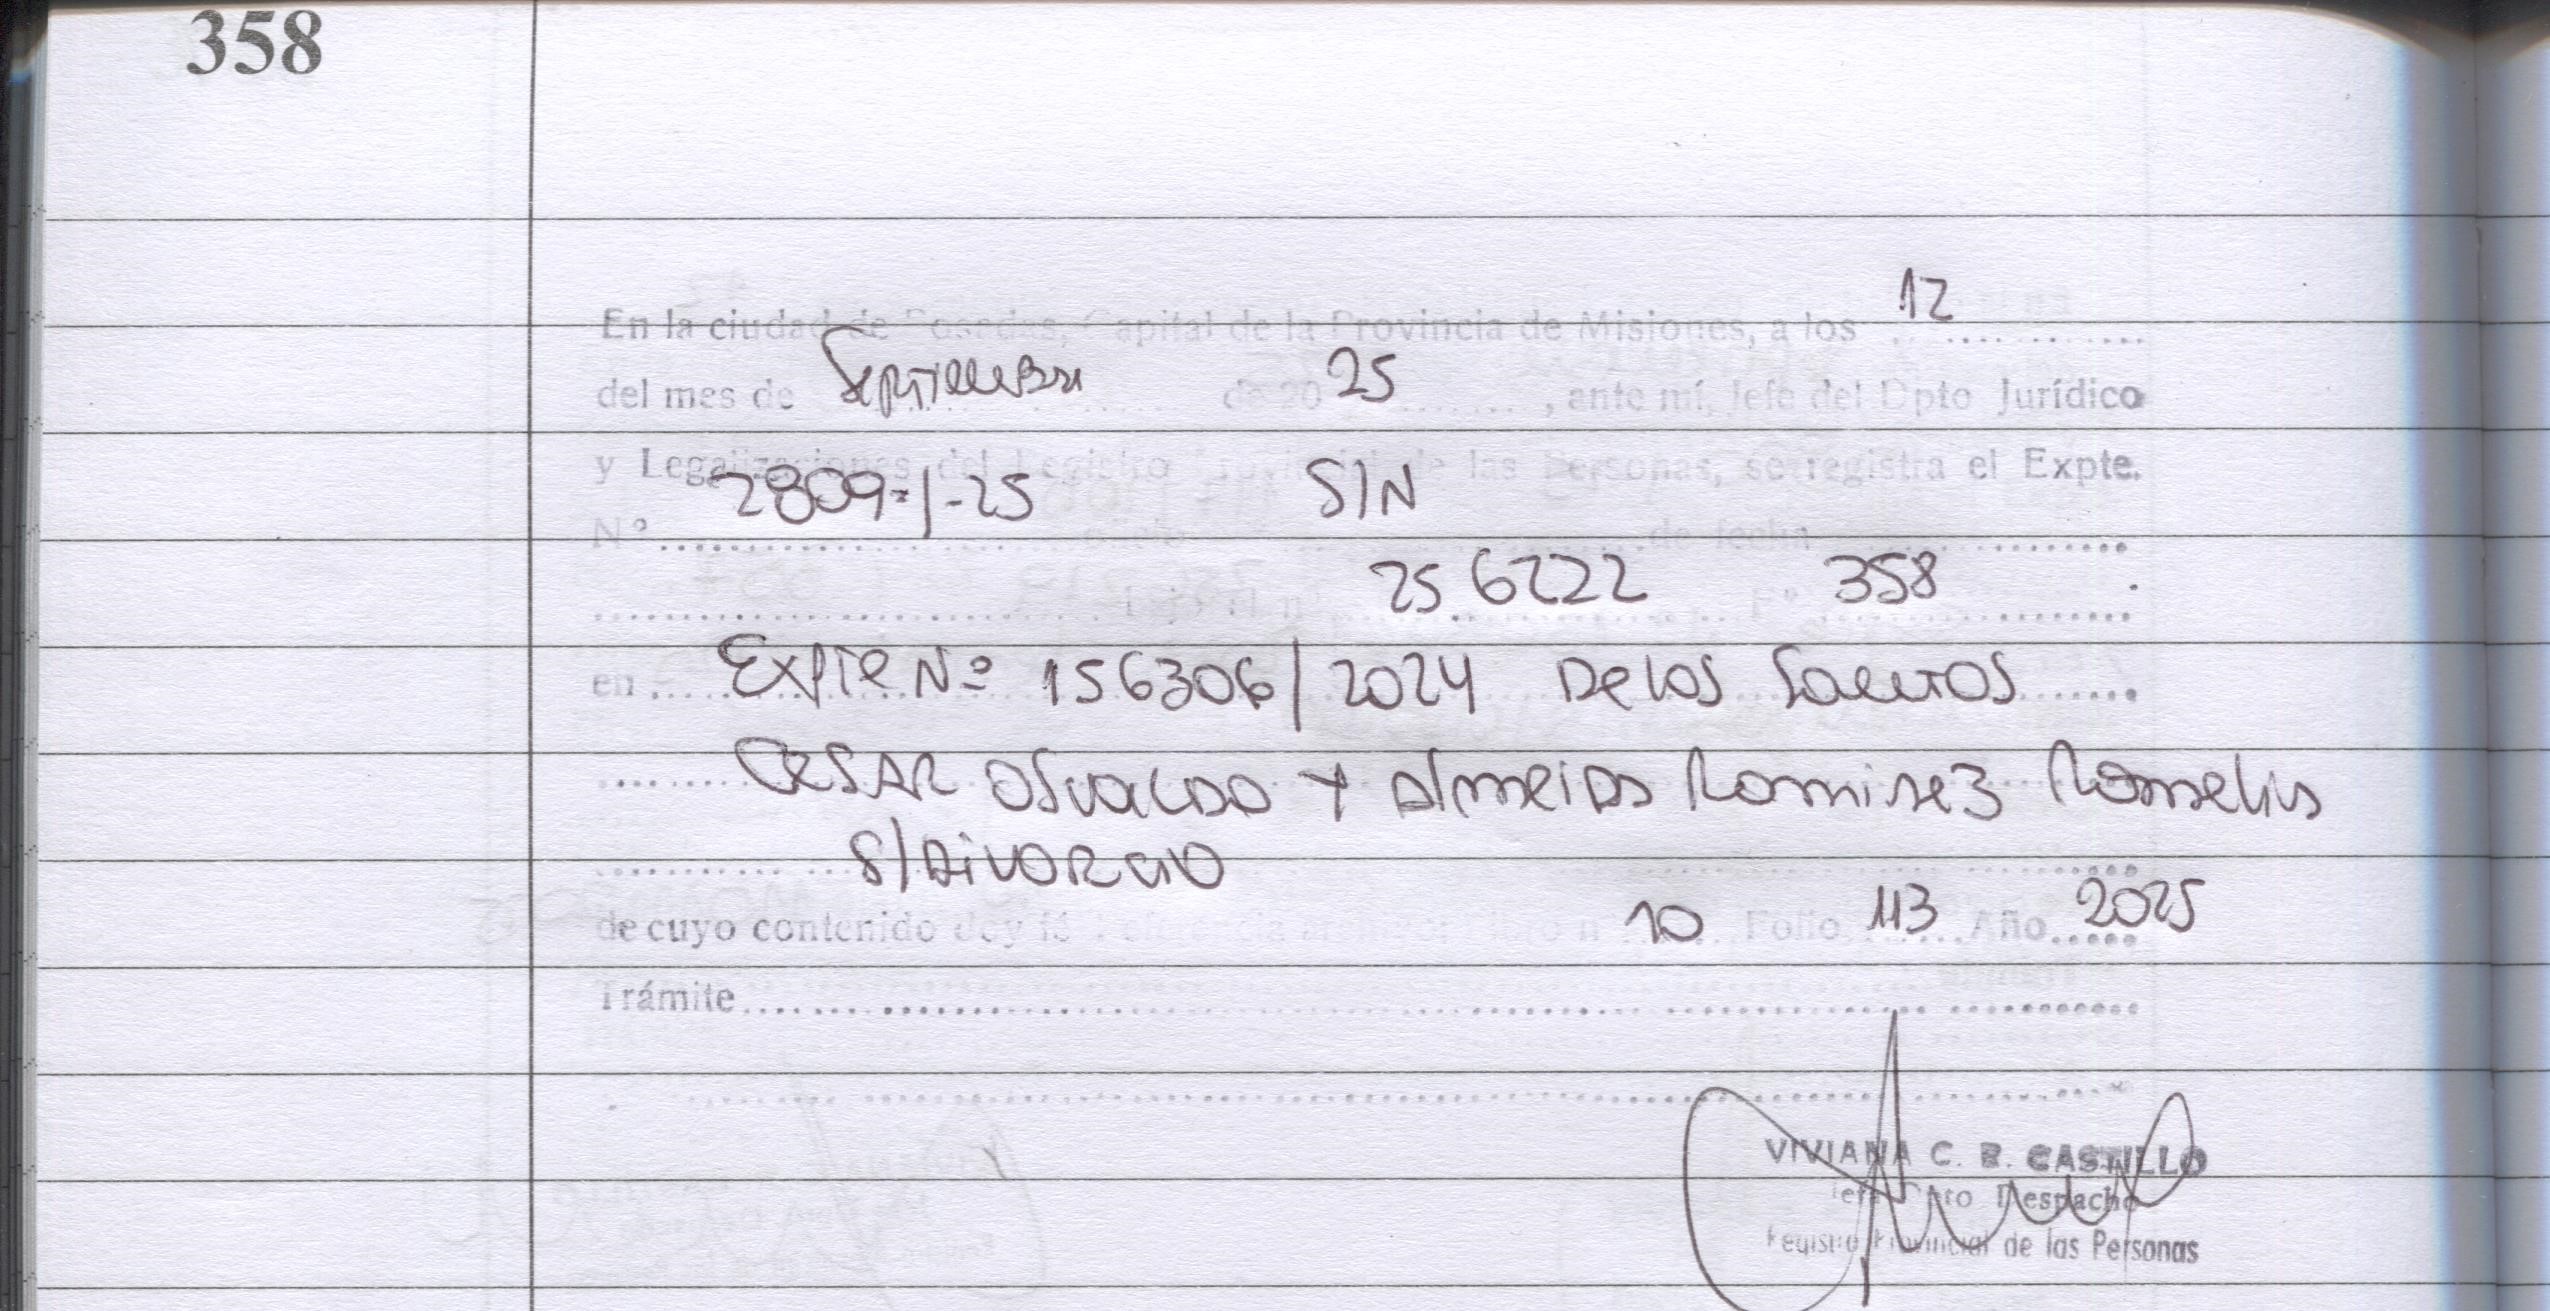 358
12
En la ciudad de Posadas, Capital de la Provincia de Misiones, a los ..............
del mes de Septiembre de 20 25 , ante mí, Jefe del Dpto Jurídico
y Legalizaciones del Registro Provincial de las Personas, se registra el Expte.
2809-1-25 S/N
Nº .............. oficio .............. de fecha ..............
25 6222 Fº 358
en Expte Nº 156306/2024 De los Santos
Cesar Osvaldo y Almeida Ramirez Romelia
S/Divorcio
de cuyo contenido doy fé 10 Folio 113 Año 2025
Trámite..............
VIVIANA C. B. CASTILLO
Jefa Dpto Despacho
Registro Provincial de las Personas